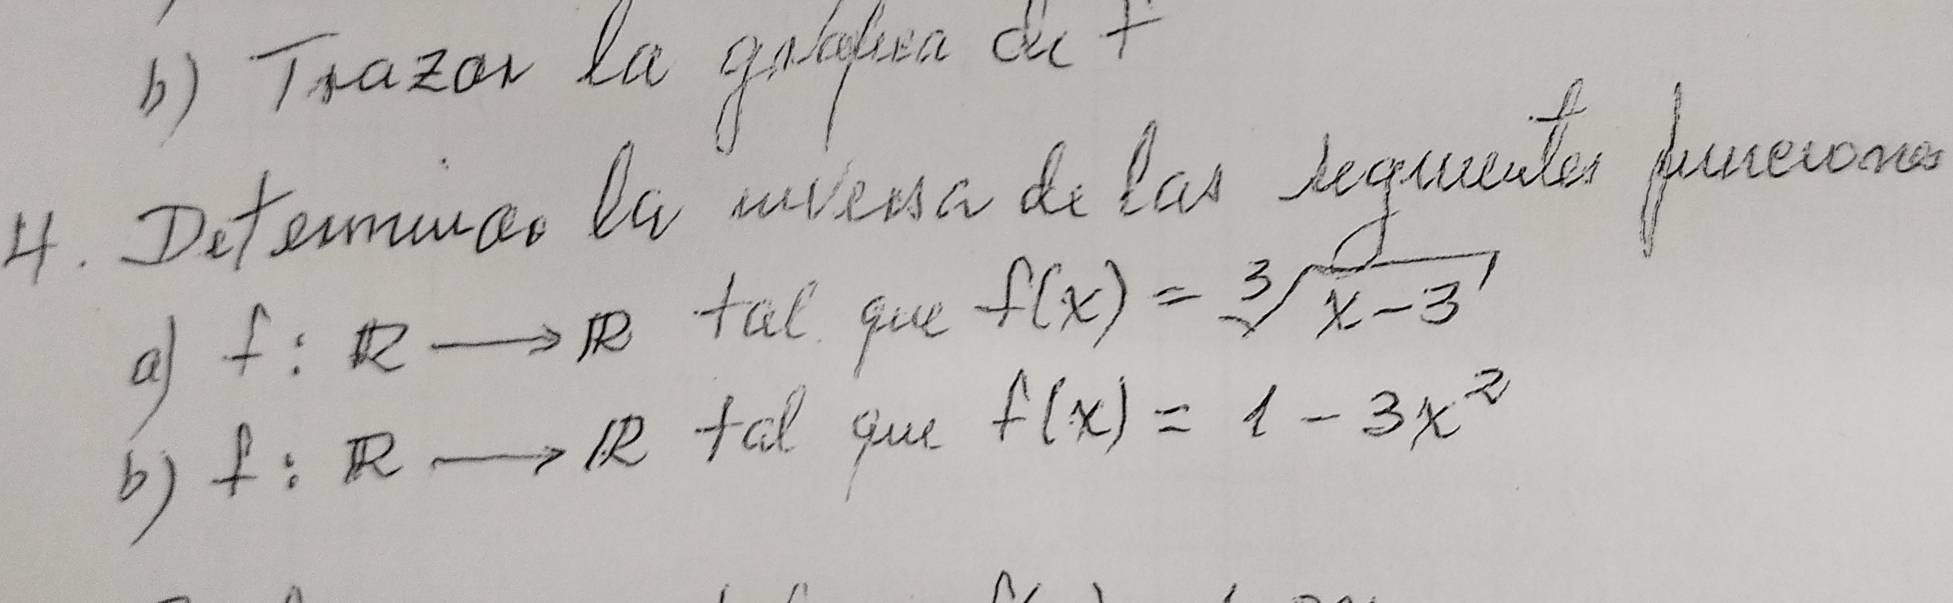 b) Trazar la gráfica de f
4. Determinar la inversa de las seguientes funciones
a) f: ℝ → ℝ tal que f(x) = ∛(x-3)
b) f: ℝ → ℝ tal que f(x) = 1 - 3x²